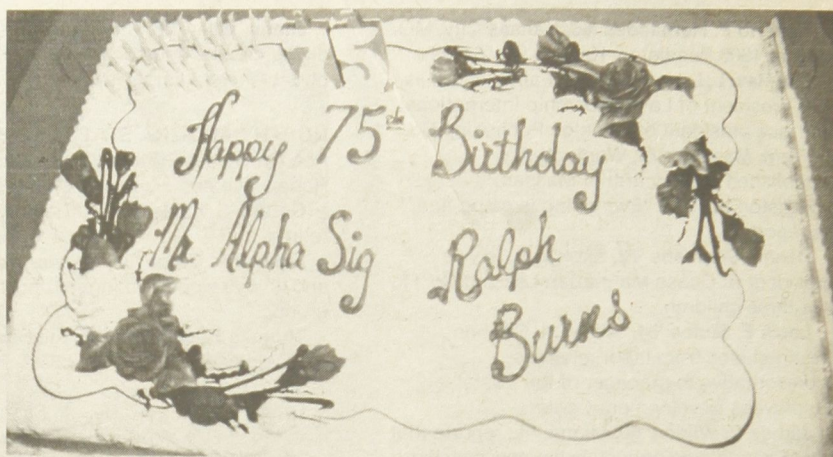 75
Happy 75th Birthday
Mr Alpha Sig Ralph
Burns